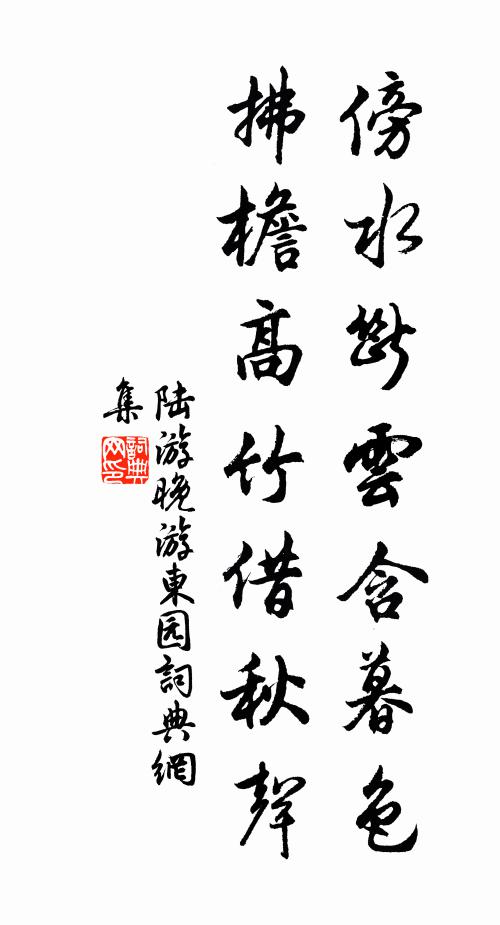 傍水斷雲含暮色
拂檐高竹借秋聲
陆游晚游東园詞典網
集
詞典网印